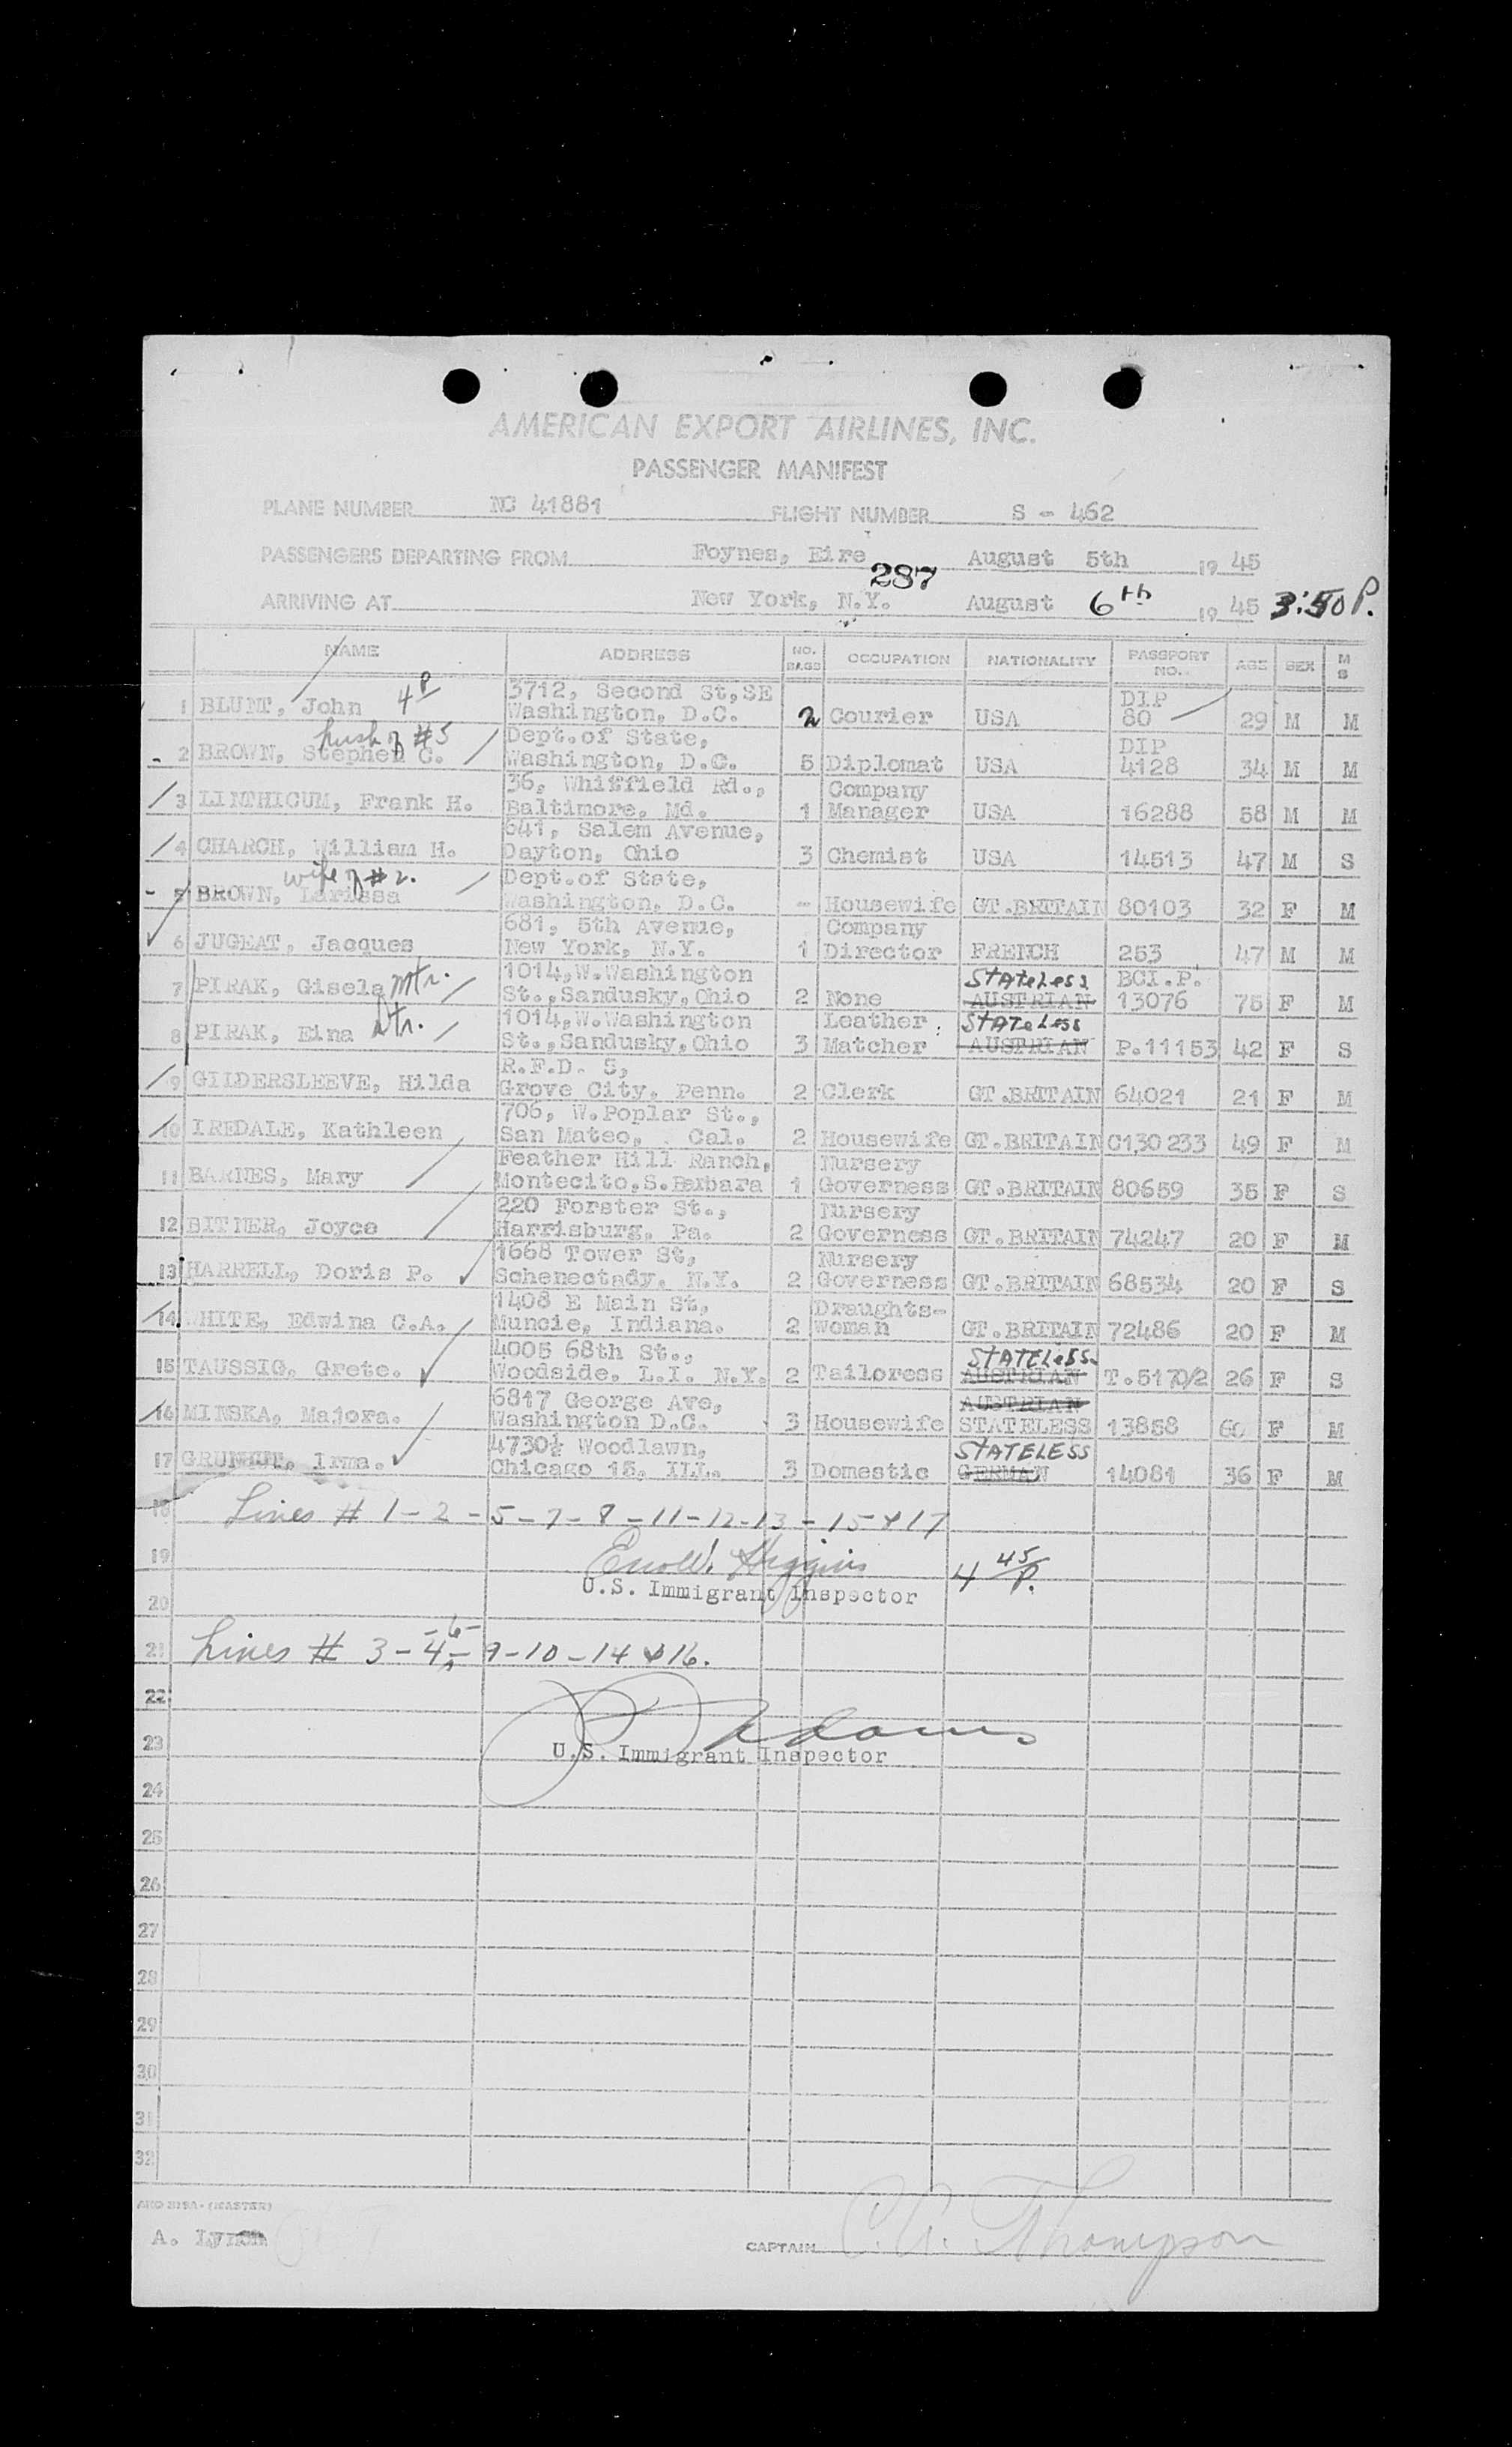 AMERICAN EXPORT AIRLINES, INC.
PASSENGER MANIFEST
PLANE NUMBER NC 41881 FLIGHT NUMBER S - 462
PASSENGERS DEPARTING FROM Foynes, Eire August 5th 19 45
287
ARRIVING AT New York, N.Y. August 6th 19 45 3:50 P.
NAME ADDRESS NO. BAGS OCCUPATION NATIONALITY PASSPORT NO. AGE SEX M S
4 P 3712, Second St,SE DIP
1 BLUNT, John Washington, D.C. 2 Courier USA 80 29 M M
husb of #5 Dept.of State, DIP
2 BROWN, Stephen C. Washington, D.C. 5 Diplomat USA 4128 34 M M
36, Whitfield Rd., Company
3 LINTHICUM, Frank H. Baltimore, Md. 1 Manager USA 16288 58 M M
641, Salem Avenue,
4 CHARCH, William H. Dayton, Ohio 3 Chemist USA 14513 47 M S
wife of #2. Dept.of State,
5 BROWN, Larissa Washington, D.C. - Housewife GT.BRITAIN 80103 32 F M
681, 5th Avenue, Company
6 JUGEAT, Jacques New York, N.Y. 1 Director FRENCH 253 47 M M
1014,W.Washington STATELESS BCI.P.
7 PIRAK, Gisela Mtr. St.,Sandusky,Ohio 2 None AUSTRIAN 13076 75 F M
1014,W.Washington Leather STATELESS
8 PIRAK, Eina Dtr. St.,Sandusky,Ohio 3 Matcher AUSTRIAN P.11153 42 F S
R.F.D. 5,
9 GILDERSLEEVE, Hilda Grove City, Penn. 2 Clerk GT.BRITAIN 64021 21 F M
706, W.Poplar St.,
10 IREDALE, Kathleen San Mateo, Cal. 2 Housewife GT.BRITAIN C130 233 49 F M
Feather Hill Ranch, Nursery
11 BARNES, Mary Montecito,S.Barbara 1 Governess GT.BRITAIN 80659 35 F S
220 Forster St., Nursery
12 BITNER, Joyce Harrisburg, Pa. 2 Governess GT.BRITAIN 74247 20 F M
1668 Tower St, Nursery
13 HARRELL, Doris P. Schenectady, N.Y. 2 Governess GT.BRITAIN 68534 20 F S
1408 E Main St, Draughts-
14 WHITE, Edwina C.A. Muncie, Indiana. 2 woman GT.BRITAIN 72486 20 F M
4005 68th St., STATELESS
15 TAUSSIG, Grete. Woodside, L.I. N.Y. 2 Tailoress AUSTRIAN T.5170/2 26 F S
6817 George Ave, AUSTRIAN
16 MINSKA, Majora. Washington D.C. 3 Housewife STATELESS 13858 60 F M
4730½ Woodlawn, STATELESS
17 Irma. Chicago 15, ILL. 3 Domestic GERMAN 14081 36 F M
18 Lines # 1 - 2 - 5 - 7 - 8 - 11 - 12 - 13 - 15 & 17
19 Higgins 4 45 P.
U.S. Immigrant Inspector
20
- 6 -
21 Lines # 3 - 4 - 9 - 10 - 14 & 16.
22
23 Adams
U.S. Immigrant Inspector
24
25
26
27
28
29
30
31
32
(MASTER)
A.
CAPTAIN C.A. Thompson